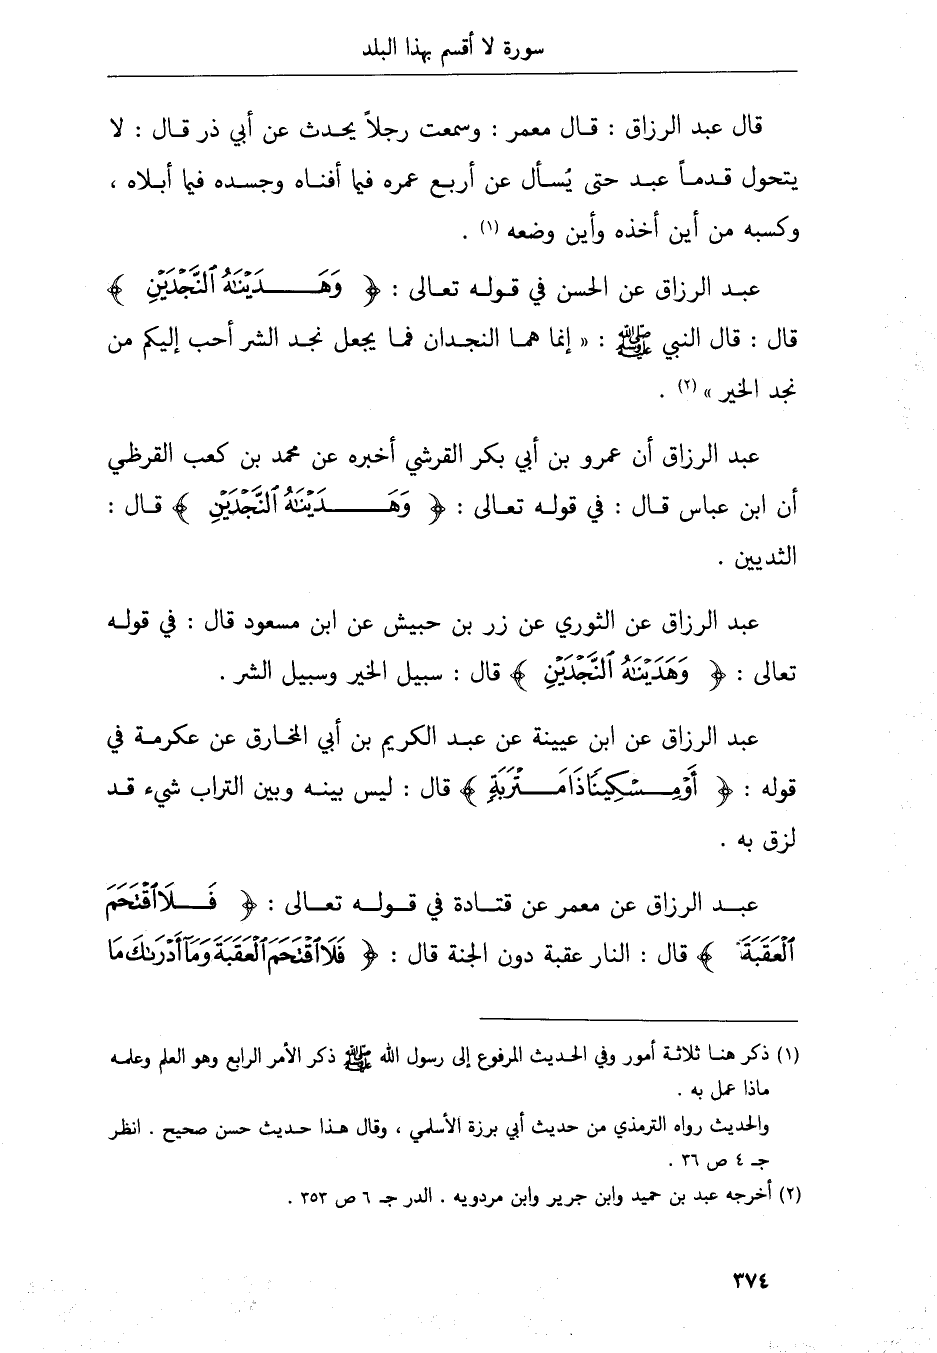 سورة لا أقسم بهذا البلد
قال عبد الرزاق : قال معمر : وسمعت رجلاً يحدث عن أبي ذر قال : لا
يتحول قدمـاً عبـد حتى يُسـأل عن أربـع عمره فيما أفنـاه وجسـده فيما أبـلاه ،
وكسبه من أين أخذه وأين وضعه (١) .
عبـد الرزاق عن الحسن في قـولـه تعـالى : ﴿ وَهَـدَيْنَاهُ ٱلنَّجْدَيْنِ ﴾
قال : قال النبي ﷺ : « إنما همـا النجـدان فمـا يجعل نجـد الشر أحب إليكم من
نجد الخير » (٢) .
عبد الرزاق أن عمرو بن أبي بكر القرشي أخبره عن محمد بن كعب القرظي
أن ابن عباس قـال : في قولـه تعـالى : ﴿ وَهَـدَيْنَاهُ ٱلنَّجْدَيْنِ ﴾ قـال :
الثديين .
عبد الرزاق عن الثوري عن زر بن حبيش عن ابن مسعود قال : في قولـه
تعالى : ﴿ وَهَدَيْنَاهُ ٱلنَّجْدَيْنِ ﴾ قال : سبيل الخير وسبيل الشر .
عبد الرزاق عن ابن عيينة عن عبـد الكريم بن أبي المخـارق عن عكرمـة في
قوله : ﴿ أَوْ مِـسْكِينًا ذَا مَـتْرَبَةٍ ﴾ قال : ليس بينـه وبين التراب شيء قـد
لزق به .
عبـد الرزاق عن معمر عن قتـادة في قـولـه تعـالى : ﴿ فَـلَا ٱقْتَحَمَ
ٱلْعَقَبَةَ ﴾ قال : النار عقبة دون الجنة قال : ﴿ فَلَا ٱقْتَحَمَ ٱلْعَقَبَةَ وَمَآ أَدْرَىٰكَ مَا
(١) ذكر هنـا ثلاثـة أمور وفي الحـديث المرفوع إلى رسول الله ﷺ ذكر الأمر الرابع وهو العلم وعلمـه
ماذا عمل به .
والحديث رواه الترمذي من حديث أبي برزة الأسلمي ، وقال هـذا حـديث حسن صحيح . انظر
جـ ٤ ص ٣٦ .
(٢) أخرجه عبد بن حميد وابن جرير وابن مردويه . الدر جـ ٦ ص ٣٥٣ .
٣٧٤